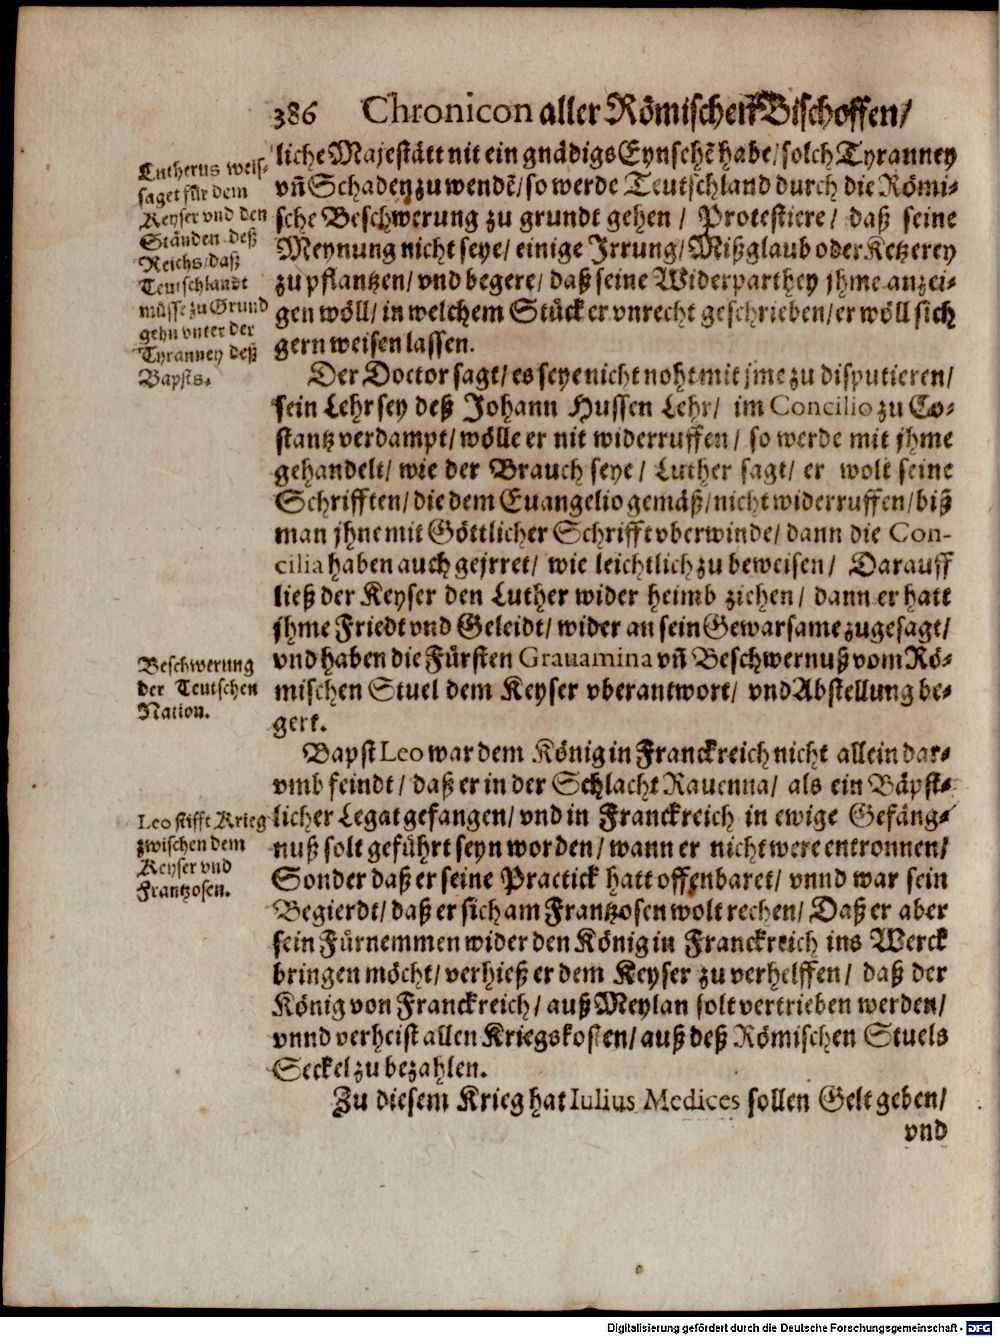 386 Chronicon aller Römischen Bischoffen/
Lutherus weis-
saget für dem
Keyser vnd den
Ständen deß
Reichs/daß
Teutschlandt
müsse zu Grund
gehn vnter der
Tyranney deß
Bapsts.
liche Majestätt nit ein gnädigs Eynsehẽ habe/solch Tyranney
vñ Schaden zu wendẽ/so werde Teutschland durch die Römi-
sche Beschwerung zu grundt gehen/ Protestiere/ daß seine
Meynung nicht seye/ einige Irrung/Mißglaub oder Ketzerey
zu pflantzen/vnd begere/ daß seine Widerparthey jhme anzei-
gen wöll/in welchem Stück er vnrecht geschrieben/er wöll sich
gern weisen lassen.
Der Doctor sagt/es seye nicht noht mit jme zu disputieren/
sein Lehr sey deß Johann Hussen Lehr/ im Concilio zu Co-
stantz verdampt/wölle er nit widerruffen/ so werde mit jhme
gehandelt/wie der Brauch seye/ Luther sagt/ er wolt seine
Schrifften/die dem Euangelio gemäß/nicht widerruffen/biß
man jhne mit Göttlicher Schrifft vberwinde/dann die Con-
cilia haben auch gejrret/ wie leichtlich zu beweisen/ Darauff
ließ der Keyser den Luther wider heimb ziehen/ dann er hatt
jhme Friedt vnd Geleidt/wider an sein Gewarsame zugesagt/
vnd haben die Fürsten Grauamina vñ Beschwernuß vom Rö-
mischen Stuel dem Keyser vberantwort/ vnd Abstellung be-
gert.
Beschwerung
der Teutschen
Nation.
Bapst Leo war dem König in Franckreich nicht allein dar-
vmb feindt/daß er in der Schlacht Rauenna/ als ein Bäpst-
licher Legat gefangen/vnd in Franckreich in ewige Gefäng-
nuß solt geführt seyn worden/wann er nicht were entronnen/
Sonder daß er seine Practick hatt offenbaret/ vnnd war sein
Begierdt/daß er sich am Frantzosen wolt rechen/ Daß er aber
sein Fürnemmen wider den König in Franckreich ins Werck
bringen möcht/verhieß er dem Keyser zu verhelffen/ daß der
König von Franckreich/auß Meylan solt vertrieben werden/
vnnd verheist allen Kriegskosten/auß deß Römischen Stuels
Seckel zu bezahlen.
Leo stifft Krieg
zwischen dem
Keyser vnd
Frantzosen.
Zu diesem Krieg hat Iulius Medices sollen Gelt geben/
vnd
Digitalisierung gefördert durch die Deutsche Forschungsgemeinschaft - DFG